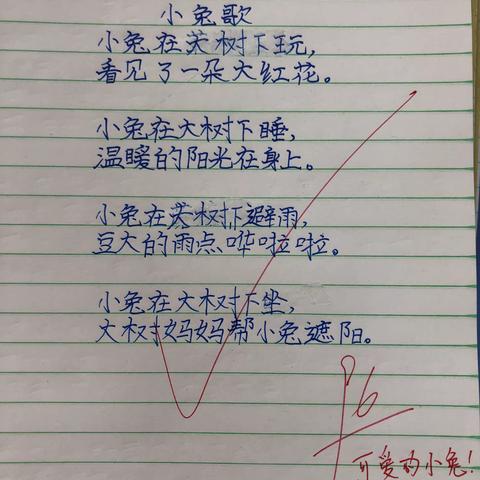 小兔歌
小兔在大树下玩,
看见了一朵大红花。
小兔在大树下睡,
温暖的阳光在身上。
小兔在大树下避雨,
豆大的雨点哗啦啦。
小兔在大树下坐,
大树妈妈帮小兔遮阳。
96
可爱的小兔!